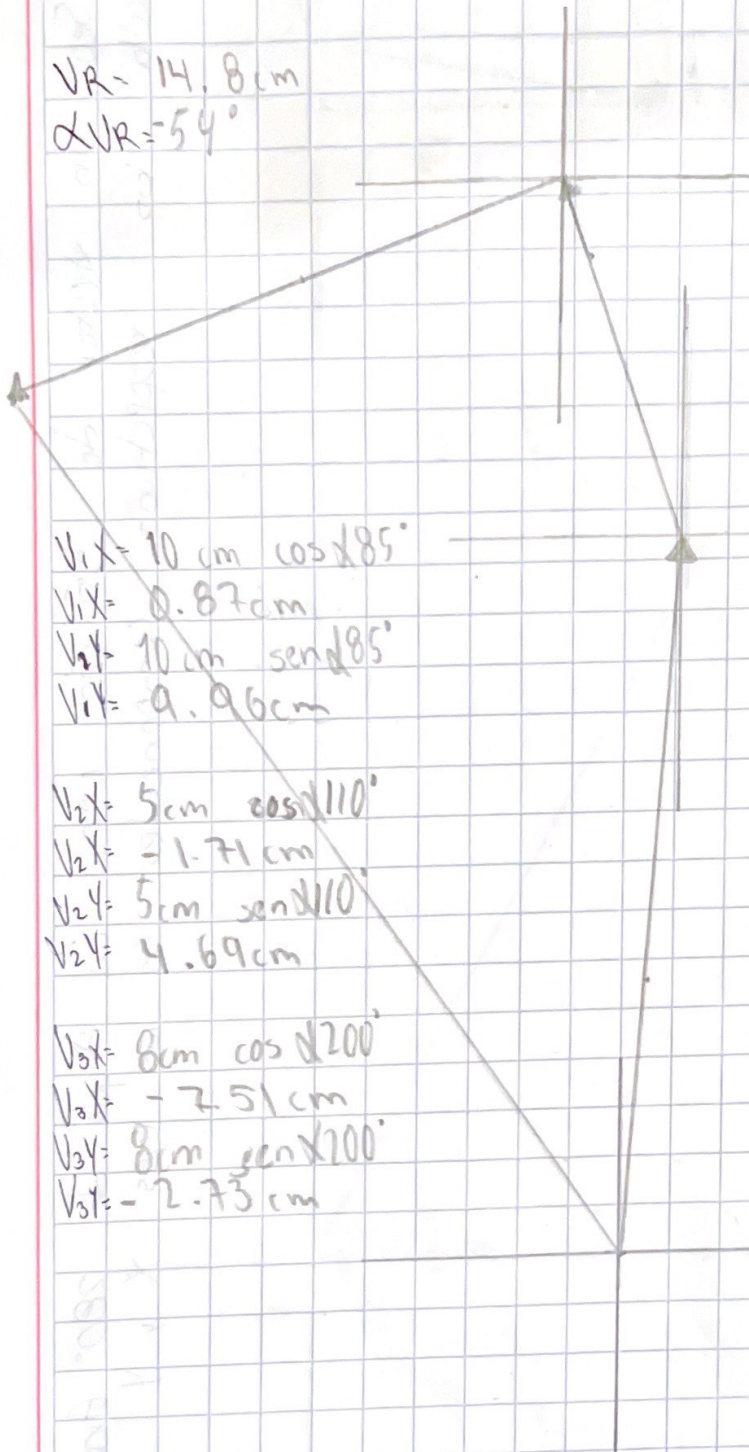 VR= 14.8cm
αVR=-54°
V₁X= 10 cm cosα85°
V₁X= 0.87cm
V₂Y= 10 cm senα85°
V₁Y= 9.96cm
V₂X= 5cm cosα110°
V₂X= -1.71cm
V₂Y= 5cm senα110°
V₂Y= 4.69cm
V₃X= 8cm cosα200°
V₃X= -7.51cm
V₃Y= 8cm senα200°
V₃Y= -2.73cm